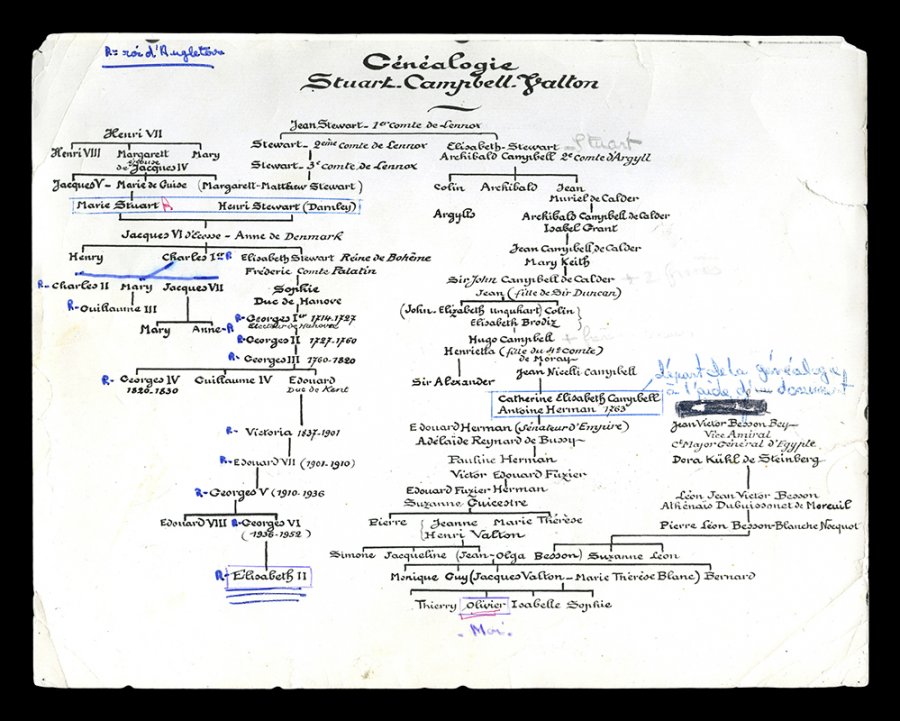 R = roi d'Angleterre
Généalogie
Stuart-Campbell-Valton
Jean Stewart - 1er comte de Lennox
Henri VII
Stewart - 2ème comte de Lennox
Elisabeth-Stewart Stuart
Archibald Campbell 2e comte d'Argyll
Henri VIII Margarett Mary
épouse de Jacques IV
Stewart - 3e comte de Lennox
Jacques V - Marie de Guise (Margarett-Matthew Stewart)
Colin Archibald Jean
Muriel de Calder
Marie Stuart R Henri Stewart (Darnley)
Argylls
Archibald Campbell de Calder
Isabel Grant
Jacques VI d'Ecosse - Anne de Denmark
Jean Campbell de Calder
Mary Keith
Henry Charles 1er R Elisabeth Stewart Reine de Bohême
Frédéric Comte Palatin
Sir John Campbell de Calder + 2 frères
R- Charles II Mary Jacques VII
Sophie
Duc de Hanove
Jean (fille de Sir Duncan)
R- Guillaume III
(John - Elizabeth Unquhart) Colin
Elisabeth Brodiz
Mary Anne-R
R- Georges Ier 1714-1727
Electeur de Hanovre
R- Georges II 1727-1760
Hugo Campbell +
Henrietta (fille du 4e comte)
de Moray
R- Georges III 1760-1820
Jean Nicelli Campbell
R- Georges IV Guillaume IV Edouard
1820-1830 Duc de Kent
Sir Alexander
départ de la généalogie
à l'aide d'un document
Catherine Elisabeth Campbell
Antoine Herman 1763
Jean Victor Besson Bey
Vice Amiral
Ct Major Général d'Egypte
Dora Kühl de Steinberg
R- Victoria 1837-1901
Edouard Herman (Sénateur d'Empire)
Adélaïde Reynard de Bussy
R- Edouard VII (1901-1910)
Pauline Herman
Victor Edouard Fuzier
R- Georges V (1910-1936
Edouard Fuzier-Herman
Suzanne Guicestre
Léon Jean Victor Besson
Athénaïs Dubuissonet de Moreuil
Edouard VIII R- Georges VI
(1936-1952)
Pierre Jeanne Marie Thérèse
Henri Valton
Pierre Léon Besson-Blanche Nocquot
Simone Jacqueline (Jean-Olga Besson) Suzanne Léon
R- Elisabeth II
Monique Guy (Jacques Valton - Marie Thérèse Blanc) Bernard
Thierry Olivier Isabelle Sophie
- Moi -